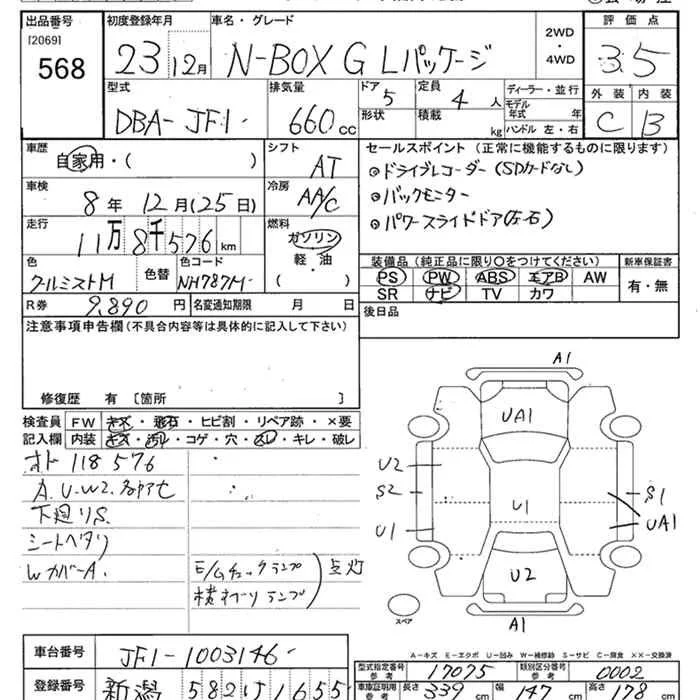 出品番号 初度登録年月 車名・グレード 2WD・4WD 評価点
[2069]
568 23 12月 N-BOX G Lパッケージ 3.5
型式 排気量 ドア 定員 ディーラー・並行 外装 内装
DBA-JF1- 660cc 5 4人 モデル年式 年
形状 積載 kg ハンドル 左・右 C B
車歴 シフト セールスポイント(正常に機能するものに限ります)
自家用・( ) AT ドライブレコーダー(SDカードなし)
車検 冷房 バックモニター
8年 12月(25日) AA/C パワースライドドア(左右)
走行 燃料
11万8千576km ガソリン
軽・油
( )
色 色替 色コード 装備品(純正品に限り○をつけてください) 新車保証書
クールミストM NH787M PS PW ABS エアB AW 有・無
SR ナビ TV カワ
R券 9,890円 名変通知期限 月 日 後日品
注意事項申告欄(不具合内容等は具体的に記入して下さい)
修復歴 有 〔箇所 〕
検査員記入欄 FW キズ・飛石・ヒビ割・リペア跡・×要
内装 キズ・汚れ・コゲ・穴・スレ・キレ・破レ
オト 118576
A.U.W2.
下廻りS.
シートヘタリ
WカバーA.
E/Gチェックランプ 点灯
ランプ
A1
UA1
U2
S2 S1
U1 U1 UA1
U2
スペア A1
A-キズ E-エクボ U-凹み W-補修跡 S-サビ C-腐食 XX-交換済
車台番号 JF1-1003146- 型式指定番号 参考 17075 類別区分番号 参考 0002
登録番号 新潟 582 1655 車庫証明用 参考 長さ 339cm 幅 147cm 高さ 178cm